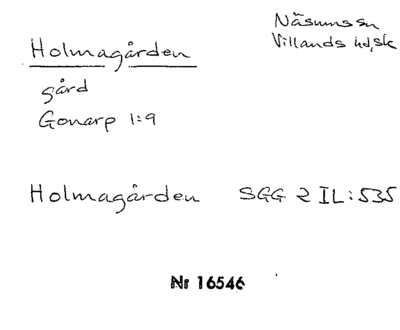 Näsums sn
Villands hd, Sk
Holmagården
gård
Gonarp 1:9
Holmagården SGG 2 IL:535
Nr 16546